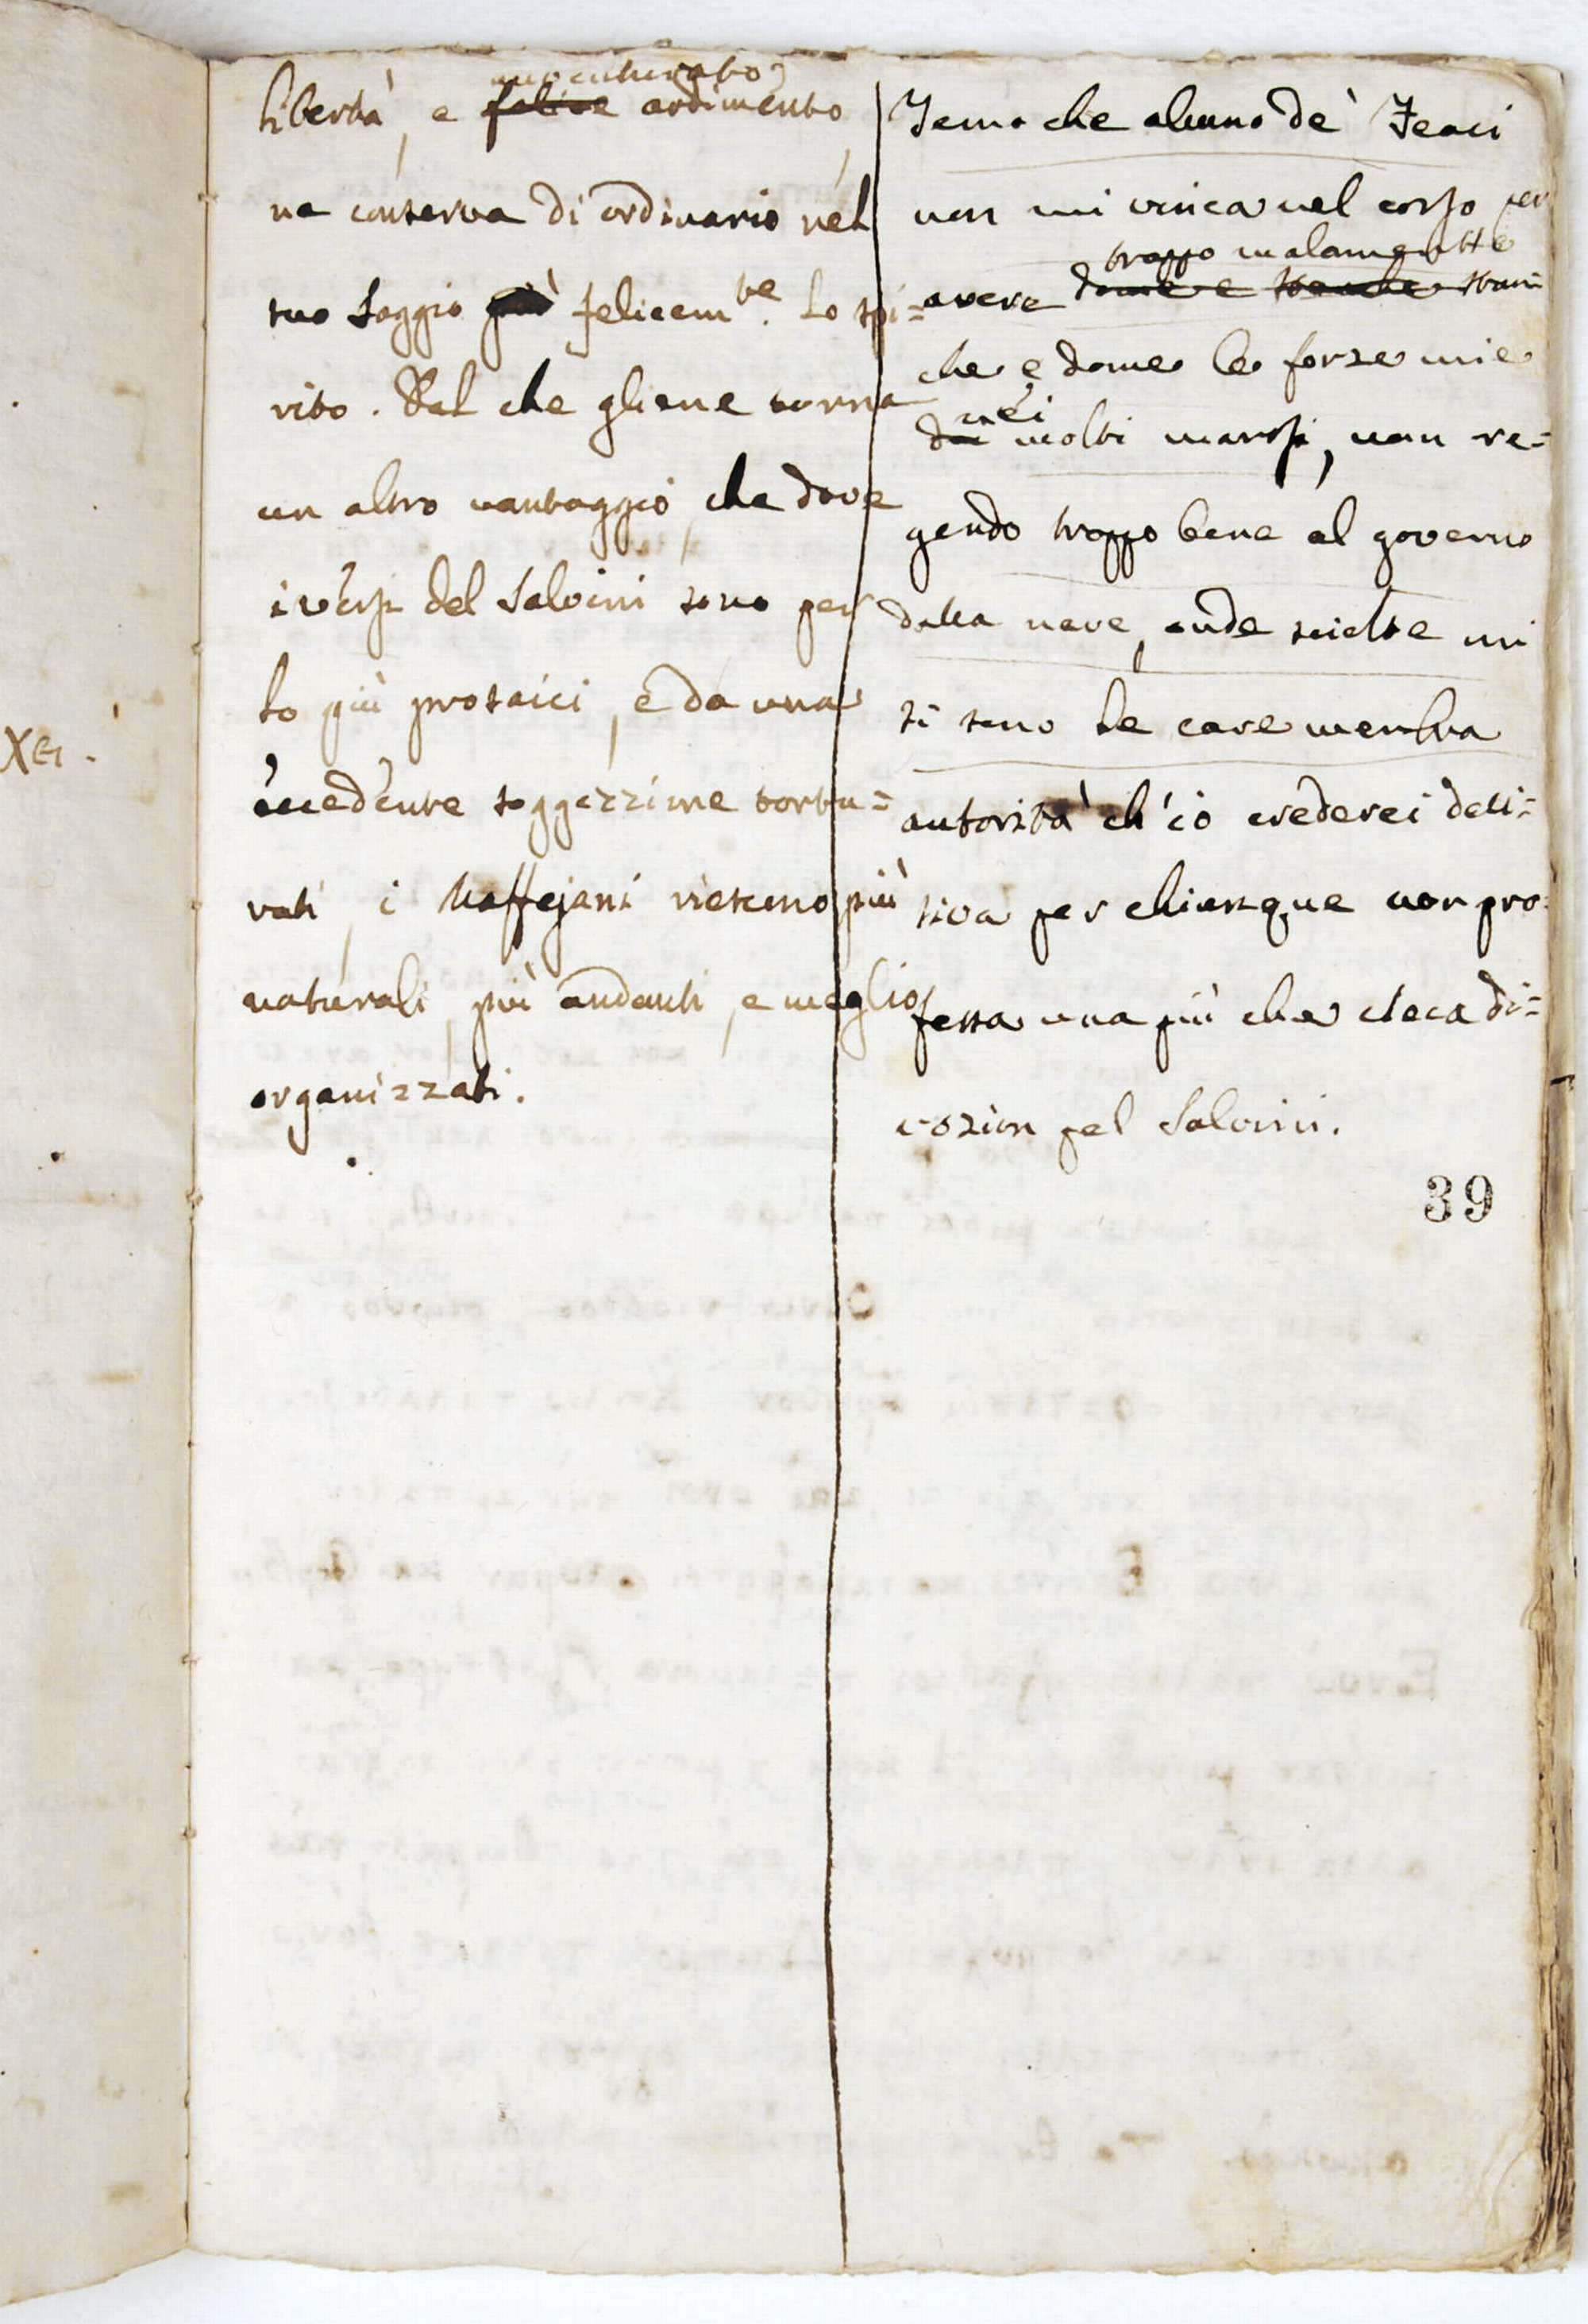 Xei.
avventurato
libertà, e felice ardimento,
ne conserva di ordinario nel
suo Saggio più felicem.te lo spi=
rito. Dal che gliene torna
un altro vantaggio, che dove
i versi del Salvini sono per
lo più prosaici, e da una
eccedente soggezzione tortu=
rati, i Maffejani riescono più
naturali, più andanti, e meglio
organizzati.
Temo che alcuno de' Feaci
non mi vinca nel corso per
troppo malamente
avere dome e stanche stan=
che e dome le forze mie
nei
da molti marosi, non re=
gendo troppo bene al governo
della nave, onde sciolte mi
si sono le care membra
autorità ch'io crederei deci=
siva per chiunque non pro=
fessa una più che cieca di=
vozion pel Salvini.
39